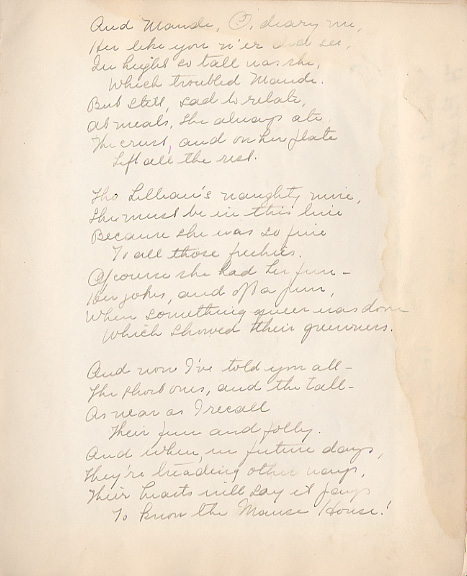 And Maude, O, deary me,
Her like you n'er did see,
In hight so tall was she,
Which troubled Maude.
But still, sad to relate,
At meals, she always ate
The crust, and on her plate
Left all the rest.
Tho Lillian's naughty nine,
She must be in this line
Because she was so fine
To all those freshies.
Of course she had her fun -
Her jokes, and oft a pun,
When something queer was done
Which showed their greenness.
And now I've told you all -
The short ones, and the tall -
As near as I recall
Their fun and folly.
And when in future days,
They're treading other ways,
Their hearts will say it pays
To know the Manse House!